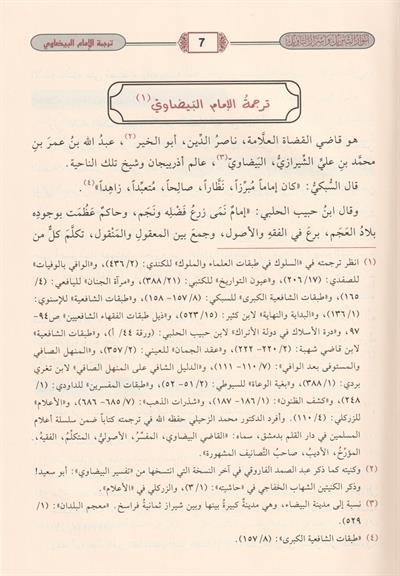 أنوار التنزيل وأسرار التأويل
7
ترجمة الإمام البيضاوي
ترجمةُ الإمام البَيضاويّ (١)
هو قاضي القضاة العلَّامة، ناصرُ الدِّين، أبو الخير(٢)، عبدُ الله بنُ عمرَ بنِ
محمَّد بنِ عليِّ الشِّيرازيُّ، البَيْضاويّ(٣)، عالم أذربيجان وشيخ تلك الناحية.
قال السُّبكيُّ: «كان إماماً مُبرِّزاً، نَظَّاراً، صالحاً، مُتعبِّداً، زاهداً»(٤).
وقال ابنُ حبيب الحلبي: «إمامٌ نَمى زرعُ فَضْلِه ونَجَم، وحاكمٌ عَظُمَت بوجودِه
بلادُ العَجَم، برعَ في الفقهِ والأصول، وجمعَ بين المعقولِ والمنْقول، تكلَّمَ كلٌّ من
(١) انظر ترجمته في «السلوك في طبقات العلماء والملوك» للكندي: (٤٣٦/٢)، و«الوافي بالوفيات»
للصفدي: (٢٠٦/١٧)، و«عيون التواريخ» للكتبي: (٣٨٨/٢١)، و«مرآة الجنان» لليافعي: (٤/
١٦٥)، و«طبقات الشافعية الكبرى» للسبكي: (١٥٧/٨- ١٥٨)، و«طبقات الشافعية» للإسنوي:
(١٣٦/١)، و«البداية والنهاية» لابن كثير: (٥٢٣/١٥)، و«ذيل طبقات الفقهاء الشافعيين» ص٩٤-
٩٧، و«درة الأسلاك في دولة الأتراك» لابن حبيب الحلبي: (ورقة ٤٤/ أ)، و«طبقات الشافعية»
لابن قاضي شهبة: (٢٢٠/٢- ٢٢٢)، و«عقد الجمان» للعيني: (٣٥٧/٢)، و«المنهل الصافي
والمستوفى بعد الوافي»: (١١٠/٧- ١١١)، و«الدليل الشافي على المنهل الصافي» لابن تغري
بردي: (٣٨٨/١)، و«بغية الوعاة» للسيوطي: (٥١/٢- ٥٢)، و«طبقات المفسرين» للداودي: (١/
٢٤٨)، و«كشف الظنون»: (١٨٦/١- ١٨٧)، و«شذرات الذهب»: (٦٨٥/٧- ٦٨٦)، و«الأعلام»
للزركلي: (١١٠/٤). وأفرد الدكتور محمد الزحيلي حفظه الله في ترجمته كتاباً ضمن سلسلة أعلام
المسلمين في دار القلم بدمشق، سماه: «القاضي البيضاوي، المفسِّرُ، الأصوليُّ، المتكلِّمُ، الفقيهُ،
المؤرِّخُ، الأديبُ، صاحبُ التَّصانيف المشهورة».
(٢) وكنيته كما ذكر عبد الصمد الفاروقي في آخر النسخة التي انتسخها من «تفسير البيضاوي»: أبو سعيد!
وذكر الكنيتين الشهاب الخفاجي في «حاشيته»: (٣/١)، والزركلي في «الأعلام».
(٣) نسبة إلى مدينة البيضاء، وهي مدينةٌ كبيرةٌ بينها وبين شيراز ثمانيةُ فراسخ. «معجم البلدان»: (١/
٥٢٩).
(٤) «طبقات الشافعية الكبرى»: (١٥٧/٨).